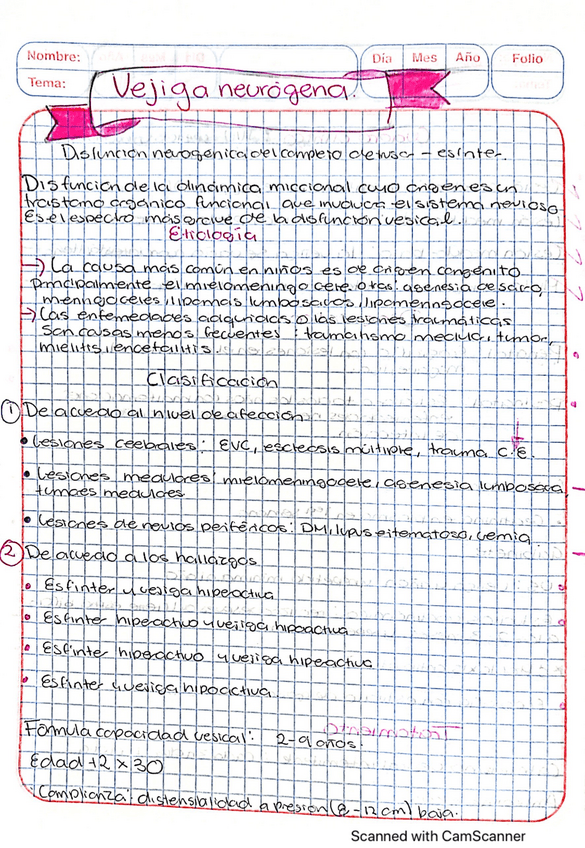 Nombre:
Día Mes Año
Folio
Tema:
Vejiga neurógena.
Disfunción neurogénica del complejo detrusor - esfínter.
Disfunción de la dinámica miccional cuyo origen es un
trastorno orgánico funcional que involucra el sistema nervioso
Es el espectro más grave de la disfunción vesical.
Etiología
→) La causa más común en niños es de origen congénito
principalmente el mielomeningocele otras: agenesia de sacro,
meningoceles, lipomas lumbosacros, lipomeningocele.
→) Las enfermedades adquiridas o las lesiones traumáticas
son causas menos frecuentes: traumatismo medular, tumor,
mielitis, encefalitis.
Clasificación
① De acuerdo al nivel de afección
• Lesiones cerebrales: EVC, esclerosis múltiple, trauma C.E.
• Lesiones medulares: mielomeningocele, agenesia lumbosacra,
tumores medulares
• Lesiones de nervios periféricos: DM, lupus eritematoso, hernia
② De acuerdo a los hallazgos
• Esfinter y vejiga hiperactiva
• Esfinter hiperactivo y vejiga hipoactiva
• Esfinter hiperactivo y vejiga hiperactiva
• Esfinter y vejiga hipoactiva.
Fórmula capacidad vesical: 2-9 años.
Edad +2 x 30
Complianza: distensibilidad a presión (8-12 cm) baja.
Scanned with CamScanner